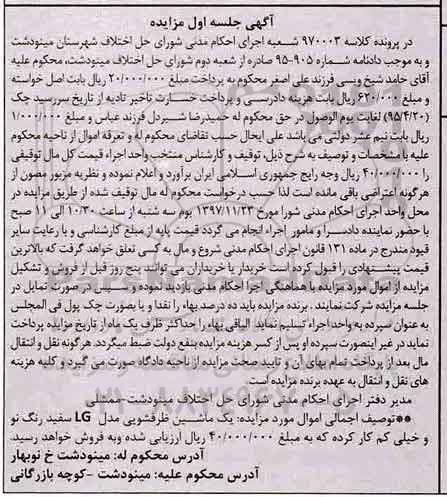 آگهی جلسه اول مزایده
در پرونده کلاسه ۹۷۰۰۰۳ شعبه اجرای احکام مدنی شورای حل اختلاف شهرستان مینودشت
و به موجب دادنامه شماره ۹۰۵-۹۵ صادره از شعبه دوم شورای حل اختلاف مینودشت، محکوم علیه
آقای حامد شیخ ویسی فرزند علی اصغر محکوم به پرداخت مبلغ ۲۰/۰۰۰/۰۰۰ ریال بابت اصل خواسته
و مبلغ ۶۲۰/۰۰۰ ریال بابت هزینه دادرسی و پرداخت خسارت تاخیر تادیه از تاریخ سررسید چک
(۹۵/۴/۲۰) لغایت یوم الوصول در حق محکوم له حمیدرضا شیردل فرزند عباس و مبلغ ۱/۰۰۰/۰۰۰
ریال بابت نیم عشر دولتی می باشد علی ایحال حسب تقاضای محکوم له و تعرفه اموال از ناحیه محکوم
علیه با مشخصات و توصیف به شرح ذیل، توقیف و کارشناس منتخب واحد اجراء قیمت کل مال توقیفی
را ۴۰/۰۰۰/۰۰۰ ریال وجه رایج جمهوری اسلامی ایران برآورد و اعلام نموده و نظریه مزبور مصون از
هرگونه اعتراضی باقی مانده است لذا حسب درخواست محکوم له مال توقیف شده از طریق مزایده در
محل واحد اجرای احکام مدنی شورا مورخ ۱۳۹۷/۱۱/۲۳ یوم سه شنبه از ساعت ۱۰/۳۰ الی ۱۱ صبح
با حضور نماینده دادسرا و مامور اجراء انجام می گردد قیمت پایه از مبلغ کارشناسی و با رعایت سایر
قیود مندرج در ماده ۱۳۱ قانون اجرای احکام مدنی شروع و مال به کسی تعلق خواهد گرفت که بالاترین
قیمت پیشنهادی را قبول کرده است خریدار یا خریداران می توانند پنج روز قبل از فروش و تشکیل
مزایده از اموال مورد مزایده با هماهنگی اجرا احکام مدنی بازدید نموده و سپس در صورت تمایل در
جلسه مزایده شرکت نمایند. برنده مزایده باید ده درصد بهاء را نقدا و یا بصورت چک پول فی المجلس
به عنوان سپرده به واحد اجراء تسلیم نماید الباقی بهاء را حداکثر ظرف یک ماه از تاریخ مزایده پرداخت
نماید در غیر اینصورت سپرده او پس از کسر هزینه مزایده بنفع دولت ضبط میگردد. هرگونه نقل و انتقال
مال بعد از پرداخت تمام بهای آن و تایید صحت مزایده از ناحیه دادگاه صورت می گیرد و کلیه هزینه
های نقل و انتقال به عهده برنده مزایده است
مدیر دفتر اجرای احکام مدنی شورای حل اختلاف مینودشت-ممشلی
**توصیف اجمالی اموال مورد مزایده: یک ماشین ظرفشویی مدل LG سفید رنگ نو
و خیلی کم کار کرده که به مبلغ ۴۰/۰۰۰/۰۰۰ ریال ارزیابی شده وبه فروش خواهد رسید.
آدرس محکوم له: مینودشت خ نوبهار
آدرس محکوم علیه: مینودشت -کوچه بازرگانی